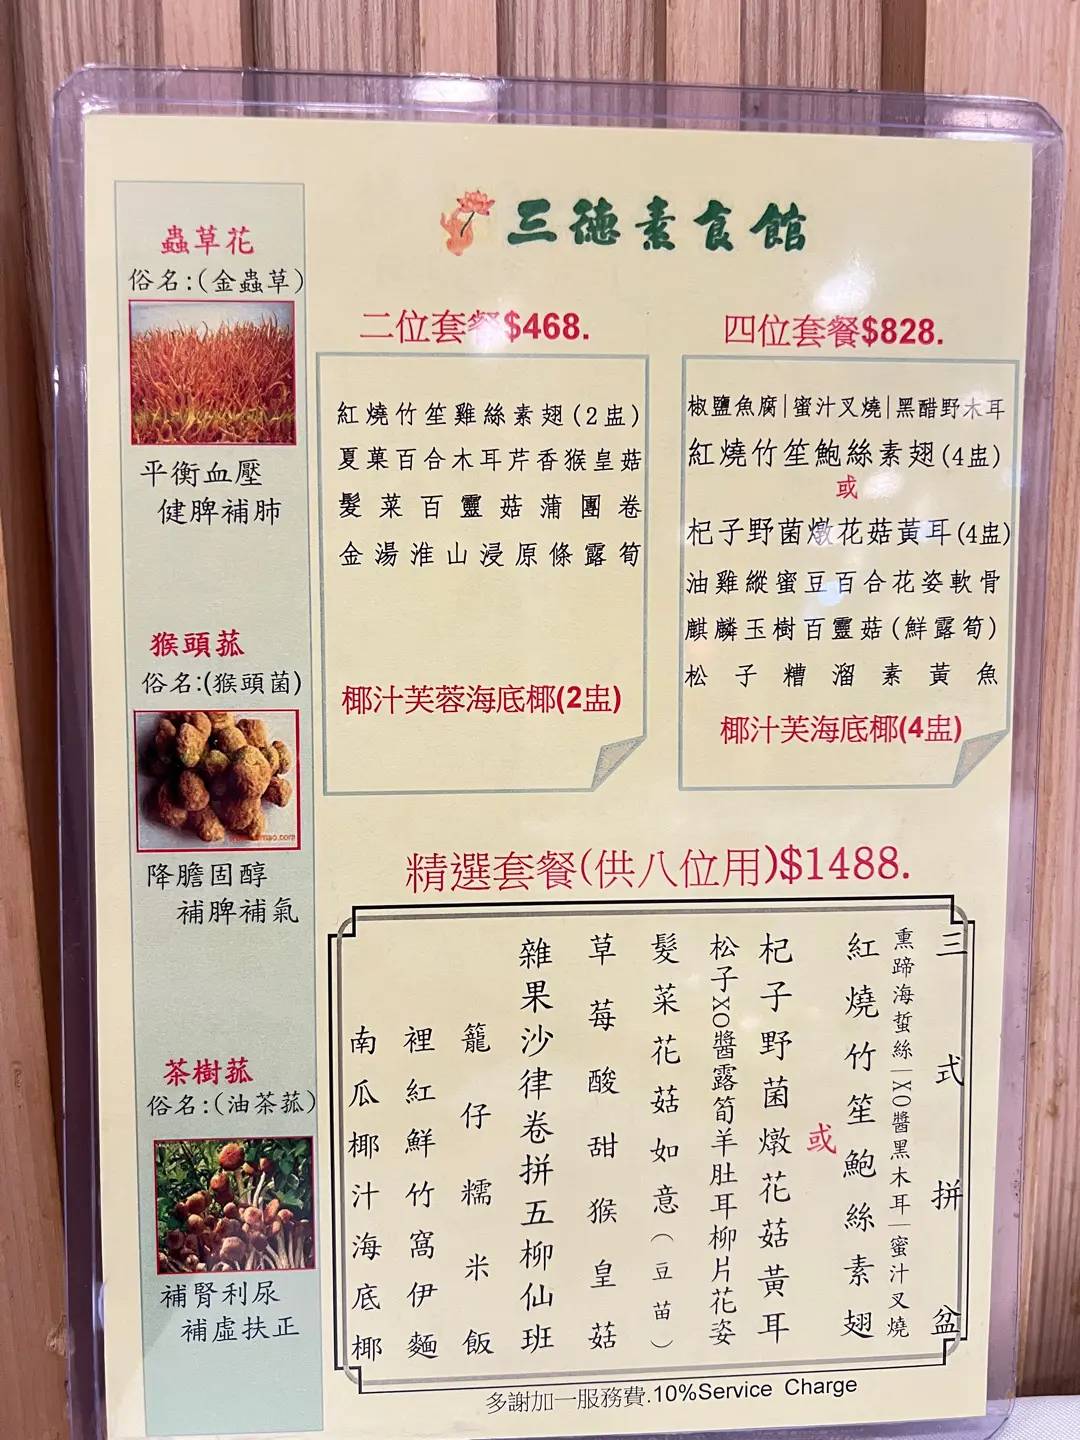 三德素食館
蟲草花
俗名:(金蟲草)
平衡血壓
健脾補肺
猴頭菰
俗名:(猴頭菌)
降膽固醇
補脾補氣
茶樹菰
俗名:(油茶菰)
補腎利尿
補虛扶正
二位套餐$468.
紅燒竹笙雞絲素翅(2盅)
夏菓百合木耳芹香猴皇菇
髮菜百靈菇蒲團卷
金湯淮山浸原條露筍
椰汁芙蓉海底椰(2盅)
四位套餐$828.
椒鹽魚腐|蜜汁叉燒|黑醋野木耳
紅燒竹笙鮑絲素翅(4盅)
或
杞子野菌燉花菇黃耳(4盅)
油雞縱蜜豆百合花姿軟骨
麒麟玉樹百靈菇(鮮露筍)
松子糟溜素黃魚
椰汁芙海底椰(4盅)
精選套餐(供八位用)$1488.
三式拼盆
熏蹄海蜇絲|XO醬黑木耳|蜜汁叉燒
紅燒竹笙鮑絲素翅
或
杞子野菌燉花菇黃耳
松子XO醬露筍羊肚耳柳片花姿
髮菜花菇如意(豆苗)
草莓酸甜猴皇菇
雜果沙律卷拼五柳仙班
籠仔糯米飯
裡紅鮮竹窩伊麵
南瓜椰汁海底椰
多謝加一服務費.10%Service Charge